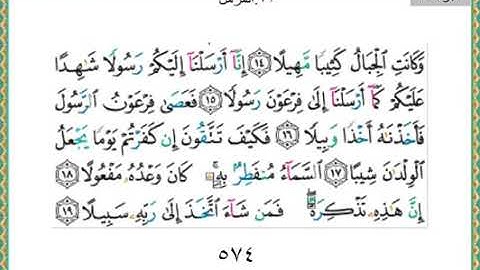 وَكَانَتِ الْجِبَالُ كَثِيبًا مَّهِيلًا ١٤ إِنَّا أَرْسَلْنَا إِلَيْكُمْ رَسُولًا شَاهِدًا
عَلَيْكُمْ كَمَا أَرْسَلْنَا إِلَىٰ فِرْعَوْنَ رَسُولًا ١٥ فَعَصَىٰ فِرْعَوْنُ الرَّسُولَ
فَأَخَذْنَاهُ أَخْذًا وَبِيلًا ١٦ فَكَيْفَ تَتَّقُونَ إِن كَفَرْتُمْ يَوْمًا يَجْعَلُ
الْوِلْدَانَ شِيبًا ١٧ السَّمَاءُ مُنفَطِرٌ بِهِ ۚ كَانَ وَعْدُهُ مَفْعُولًا ١٨
إِنَّ هَٰذِهِ تَذْكِرَةٌ ۖ فَمَن شَاءَ اتَّخَذَ إِلَىٰ رَبِّهِ سَبِيلًا ١٩
٥٧٤